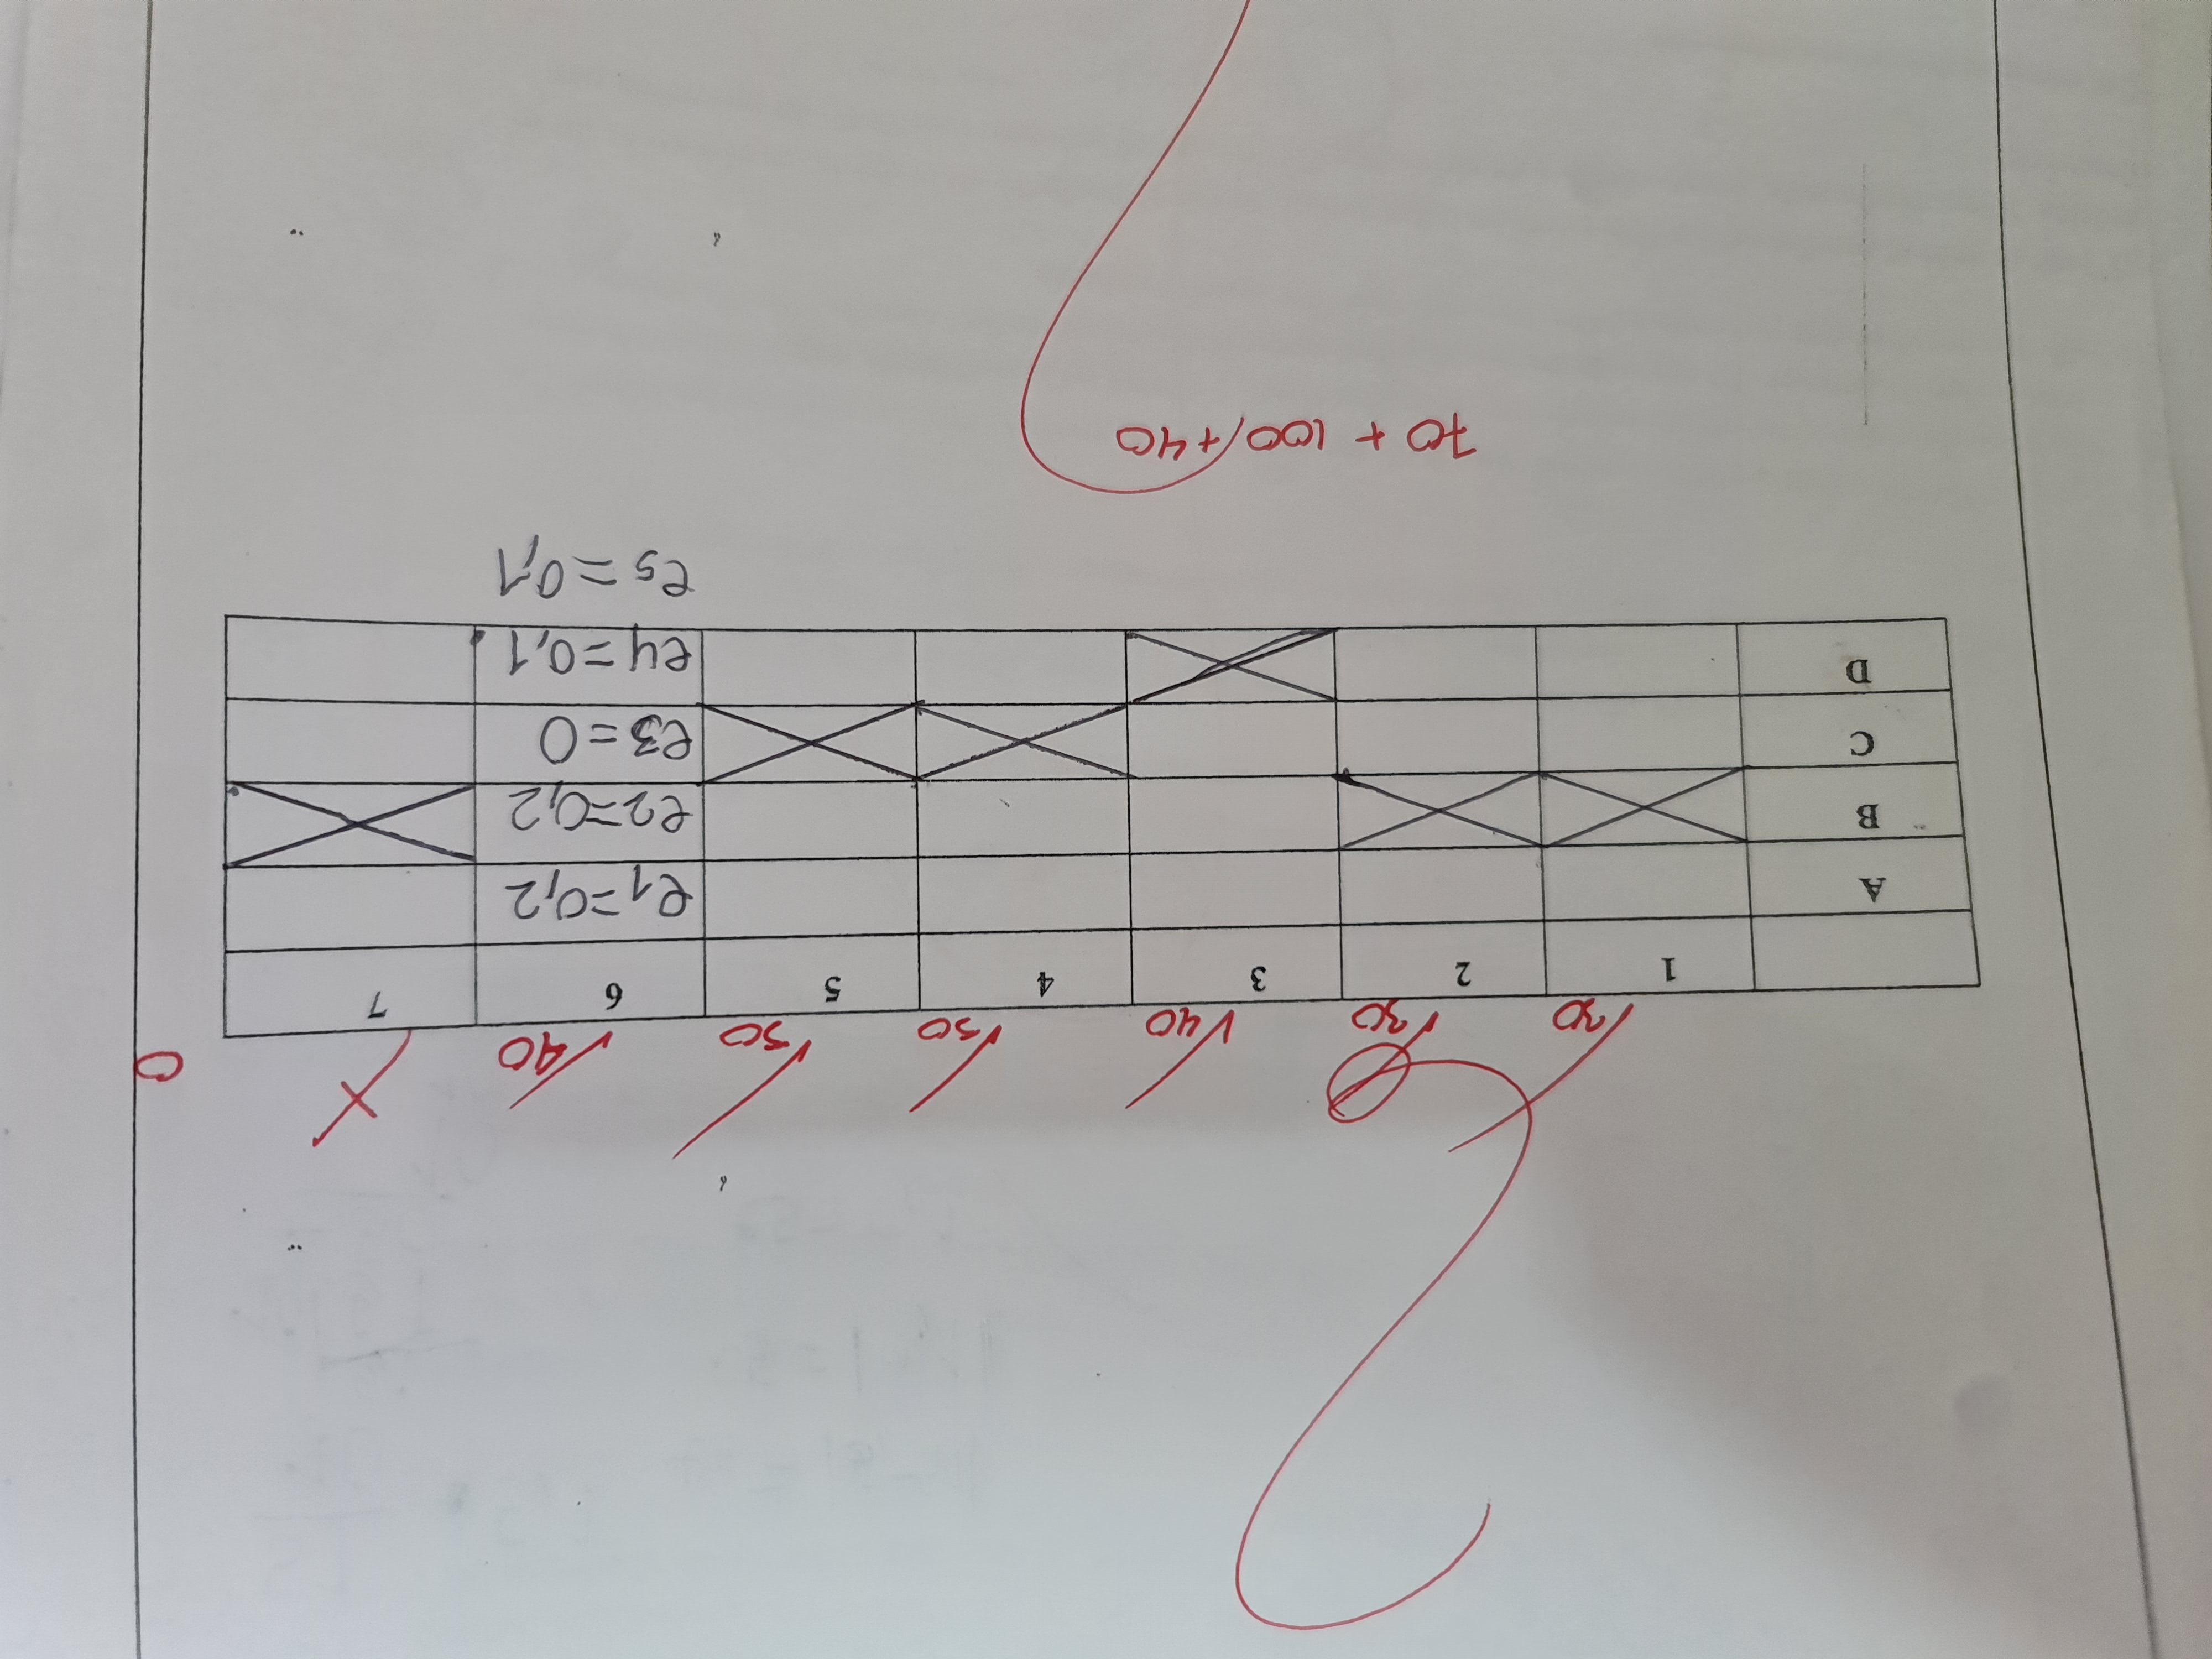 30 30 40 50 50 40 0
1 2 3 4 5 6 7
A e1=0,2
B e2=0,2
C e3=0
D e4=0,1
e5=0,1
70 + 100/+40